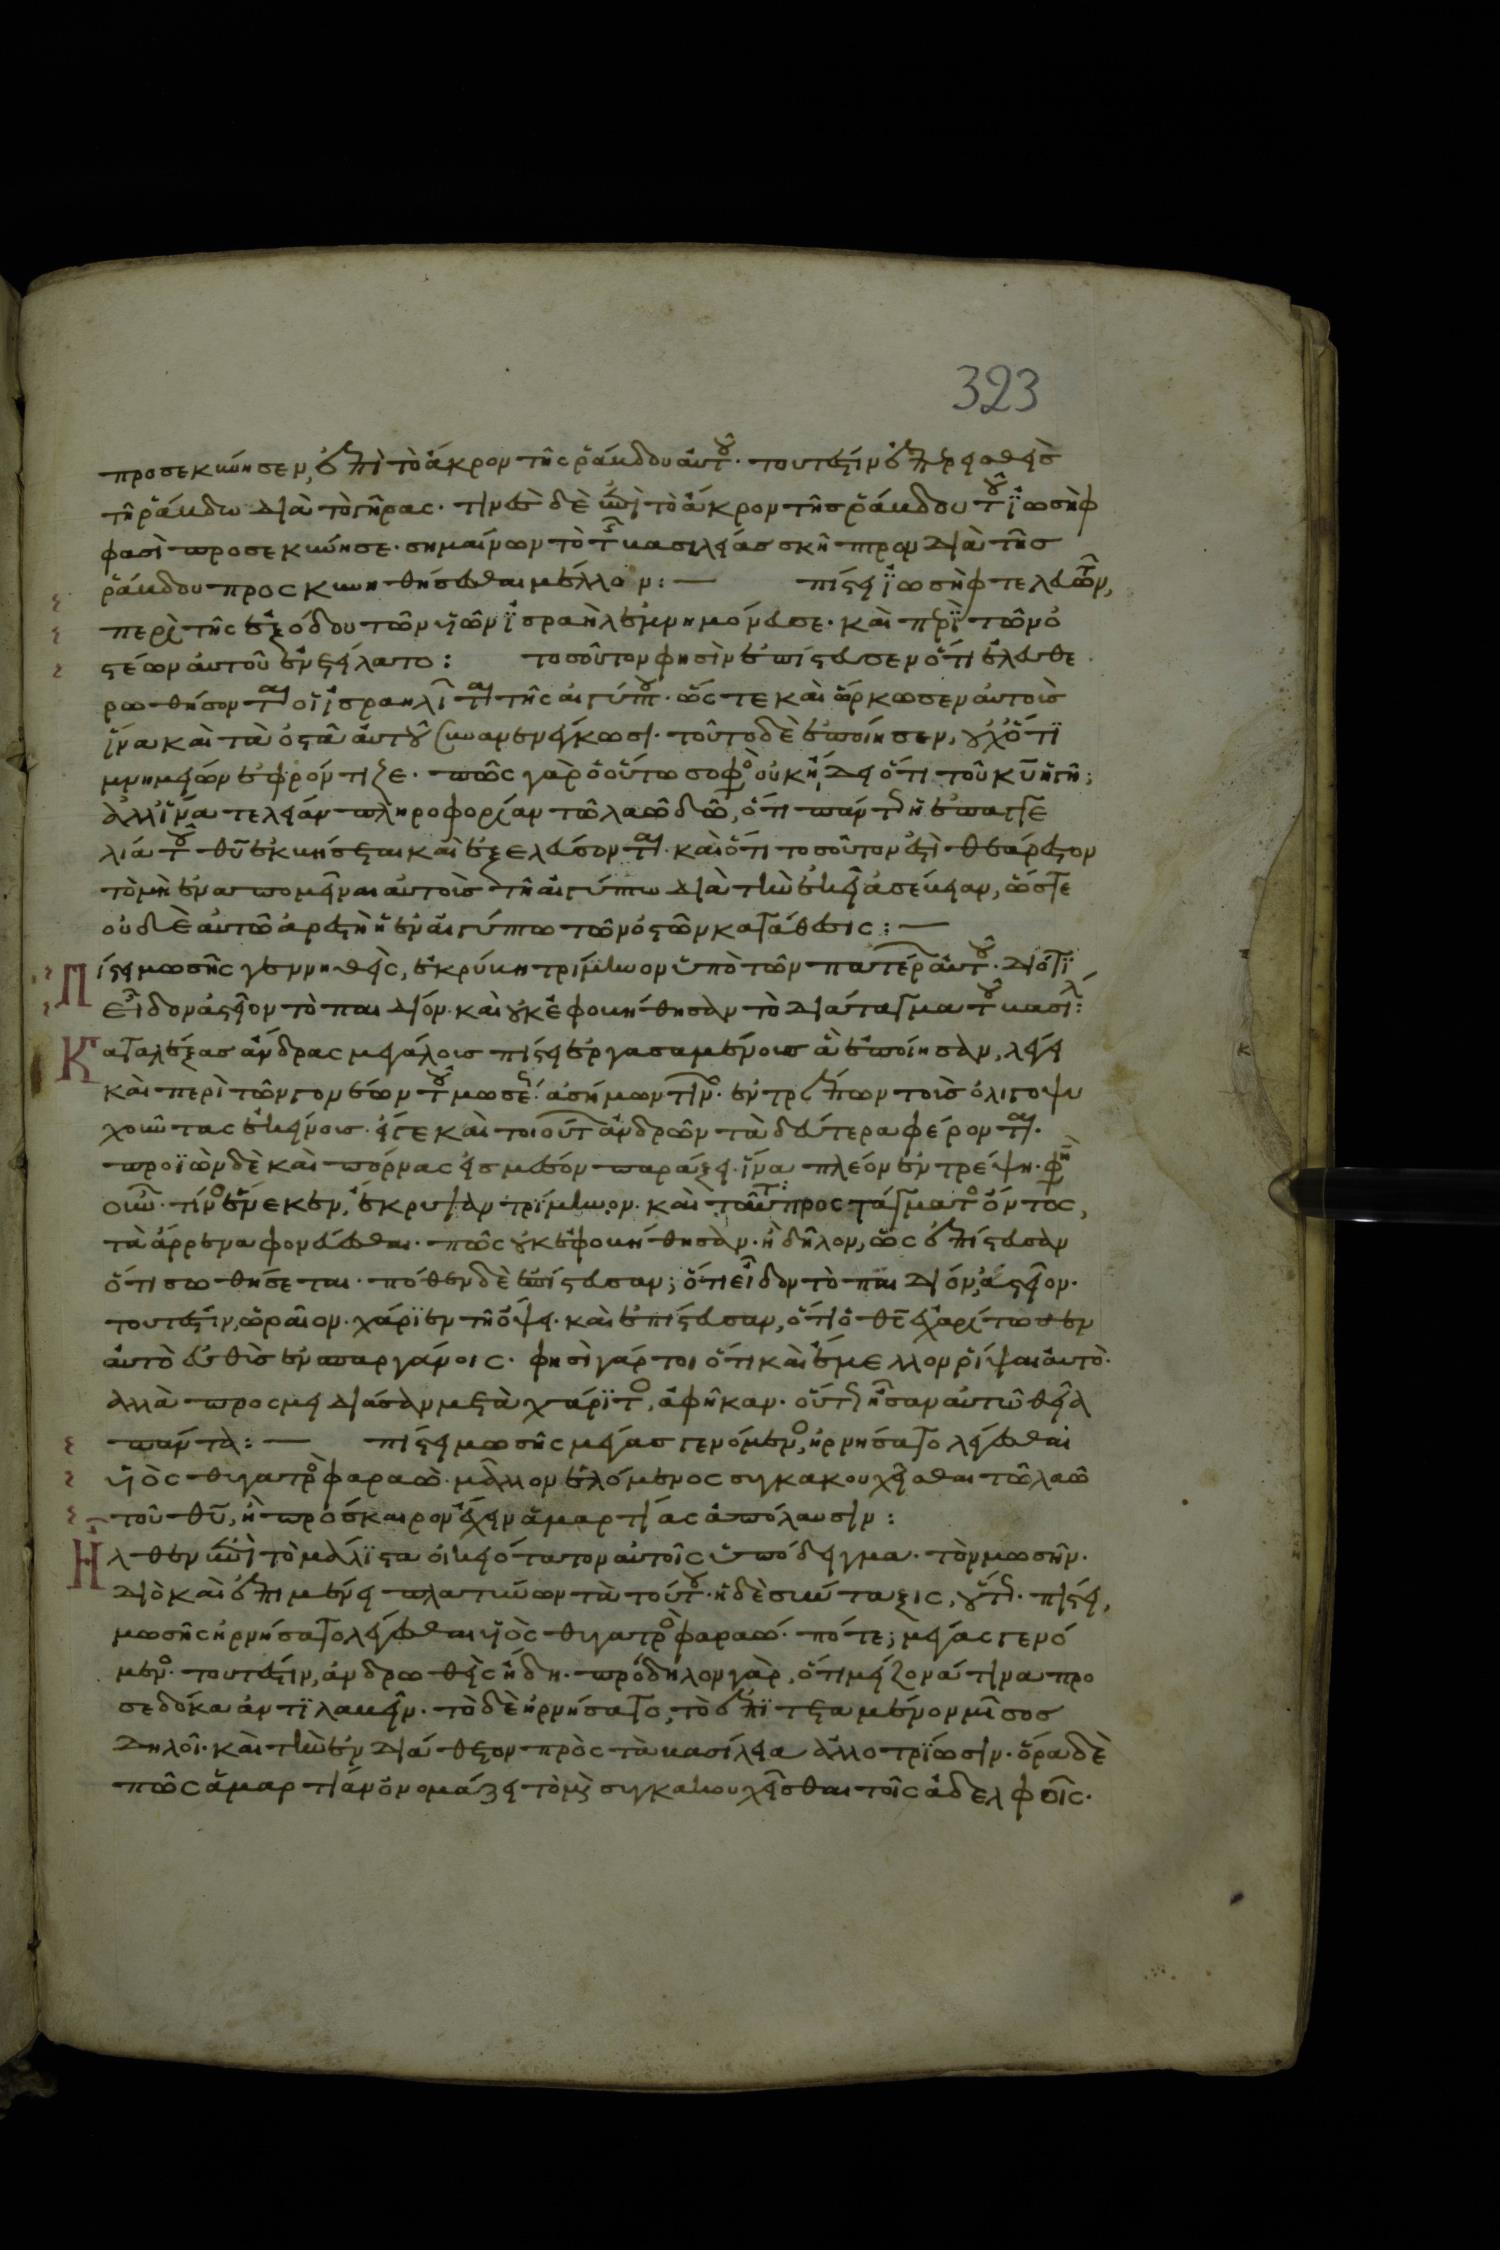 323
προσεκύνησεν, ἐπὶ τὸ ἄκρον τῆς ῥάβδου αὐτοῦ· τουτέστιν ἐπερεισθεὶς
τῇ ῥάβδω διὰ τὸ γῆρας· τινὲς δὲ ἐπὶ τὸ ἄκρον τῆς ῥάβδου τοῦ ἰωσὴφ
φασὶ προσεκύνησε· σημαίνων τὸ τῆς βασιλείας σκῆπτρον διὰ τῆς
ῥάβδου προσκυνηθήσεσθαι μέλλον: — πίστει ἰωσὴφ τελευτῶν,
περὶ τῆς ἐξόδου τῶν υἱῶν ἰσραὴλ ἐμνημόνευσε· καὶ περὶ τῶν ὀ
στέων αὐτοῦ ἐνετείλατο: τοσοῦτον φησὶν ἐπίστευσεν ὅτι ἐλευθε
ρωθήσονται οἱ ἰσραηλῖται τῆς αἰγύπτου· ὥστε καὶ ὥρκωσεν αὐτοὺς
ἵνα καὶ τὰ ὀστᾶ αὐτοῦ συνανενέγκωσι· τοῦτο δὲ ἐποίησεν, οὐχ ὅτι
μνημείων ἐφρόντιζε· πῶς γὰρ ὁ οὕτω σοφὸς οὐκ ᾔδει ὅτι τοῦ κυ ἡ γῆ;
ἀλλ' ἵνα τελείαν πληροφορίαν τῶ λαῶ δῶ, ὅτι πάντως ἡ ἐπαγγε
λία τοῦ θυ ἐκβήσεται καὶ ἐξελεύσονται· καὶ ὅτι τοσοῦτον ἐστὶ θεάρεστον
τὸ μὴ ἐναπομεῖναι αὐτοὺς τῇ αἰγύπτω διὰ τὴν ἐκεῖ ἀσέβειαν, ὥστε
οὐδὲ αὐτῶ ἀρεστὴ ἡ ἐν αἰγύπτω τῶν ὀστῶν κατάθεσις: —
Πίστει μωσῆς γεννηθεὶς, ἐκρύβη τρίμηνον ὑπὸ τῶν πατέρων αὐτοῦ· διότι
εἶδον ἀστεῖον τὸ παιδίον· καὶ οὐκ ἐφοβήθησαν τὸ διάταγμα τοῦ βασιλ:
Καταλέξας ἄνδρας μεγάλους πίστει ἐργασαμένους ἃ ἐποίησαν, λέγει
καὶ περὶ τῶν γονέων τοῦ μωσέως ἀσήμων τινῶν· ἐντρέπων τοὺς ὀλιγοψυ
χοῦντας ἐκείνους· εἴγε καὶ τοιούτων ἀνδρῶν τὰ δεύτερα φέρονται·
προϊὼν δὲ καὶ πόρνας εἰς μέσον παράξει· ἵνα πλέον ἐντρέψη· φησὶν
οὖν· τίνος ἕνεκεν, ἔκρυψαν τρίμηνον· καὶ τοῦ προστάγματος ὄντος,
τὰ ἄρρενα φονεύεσθαι· πῶς οὐκ ἐφοβήθησαν· ἢ δῆλον, ὡς ἐπίστευσαν
ὅτι σωθήσεται· πόθεν δὲ ἐπίστευσαν; ὅτι εἶδον τὸ παιδίον, ἀστεῖον·
τουτέστιν, ὡραῖον· χάριεν τῇ ὄψει· καὶ ἐπίστευσαν, ὅτι ὁ θς ἐχαρίτωσεν
αὐτὸ εὐθὺς ἐν σπαργάνοις· φησὶ γάρ τοι ὅτι καὶ ἔμελλον ῥίψαι αὐτὸ·
ἀλλὰ προσμειδιάσαν μετὰ χάριτος, ἀφῆκαν· οὕτως ἦσαν αὐτῶ θεῖα
πάντα: — πίστει μωσῆς μέγας γενόμενος, ἠρνήσατο λέγεσθαι
υἱὸς θυγατρὸς φαραώ· μᾶλλον ἑλόμενος συγκακουχεῖσθαι τῶ λαῶ
τοῦ θυ, ἢ πρόσκαιρον ἔχειν ἁμαρτίας ἀπόλαυσιν:
Ἦλθεν ἐπὶ τὸ μάλιστα οἰκειότατον αὐτοῖς ὑπόδειγμα· τὸν μωσῆν·
διὸ καὶ ἐπιμένει πλατύνων τὰ τούτου· ἡ δὲ σύνταξις, οὕτως· πίστει,
μωσῆς ἠρνήσατο λέγεσθαι υἱὸς θυγατρὸς φαραώ· πότε; μέγας γενό
μενος· τουτέστιν, ἀνδρωθεὶς ἤδη· πρόδηλον γὰρ, ὅτι μείζονά τινα προ
σεδόκα ἀντιλαβεῖν· τὸ δὲ ἠρνήσατο, τὸ ἐπιτεταμένον μῖσος
δηλοῖ· καὶ τὴν ἐνδιάθετον πρὸς τὰ βασίλεια ἀλλοτρίωσιν· ὅρα δὲ
πῶς ἁμαρτίαν ὀνομάζει τὸ μὴ συγκακουχεῖσθαι τοῖς ἀδελφοῖς·